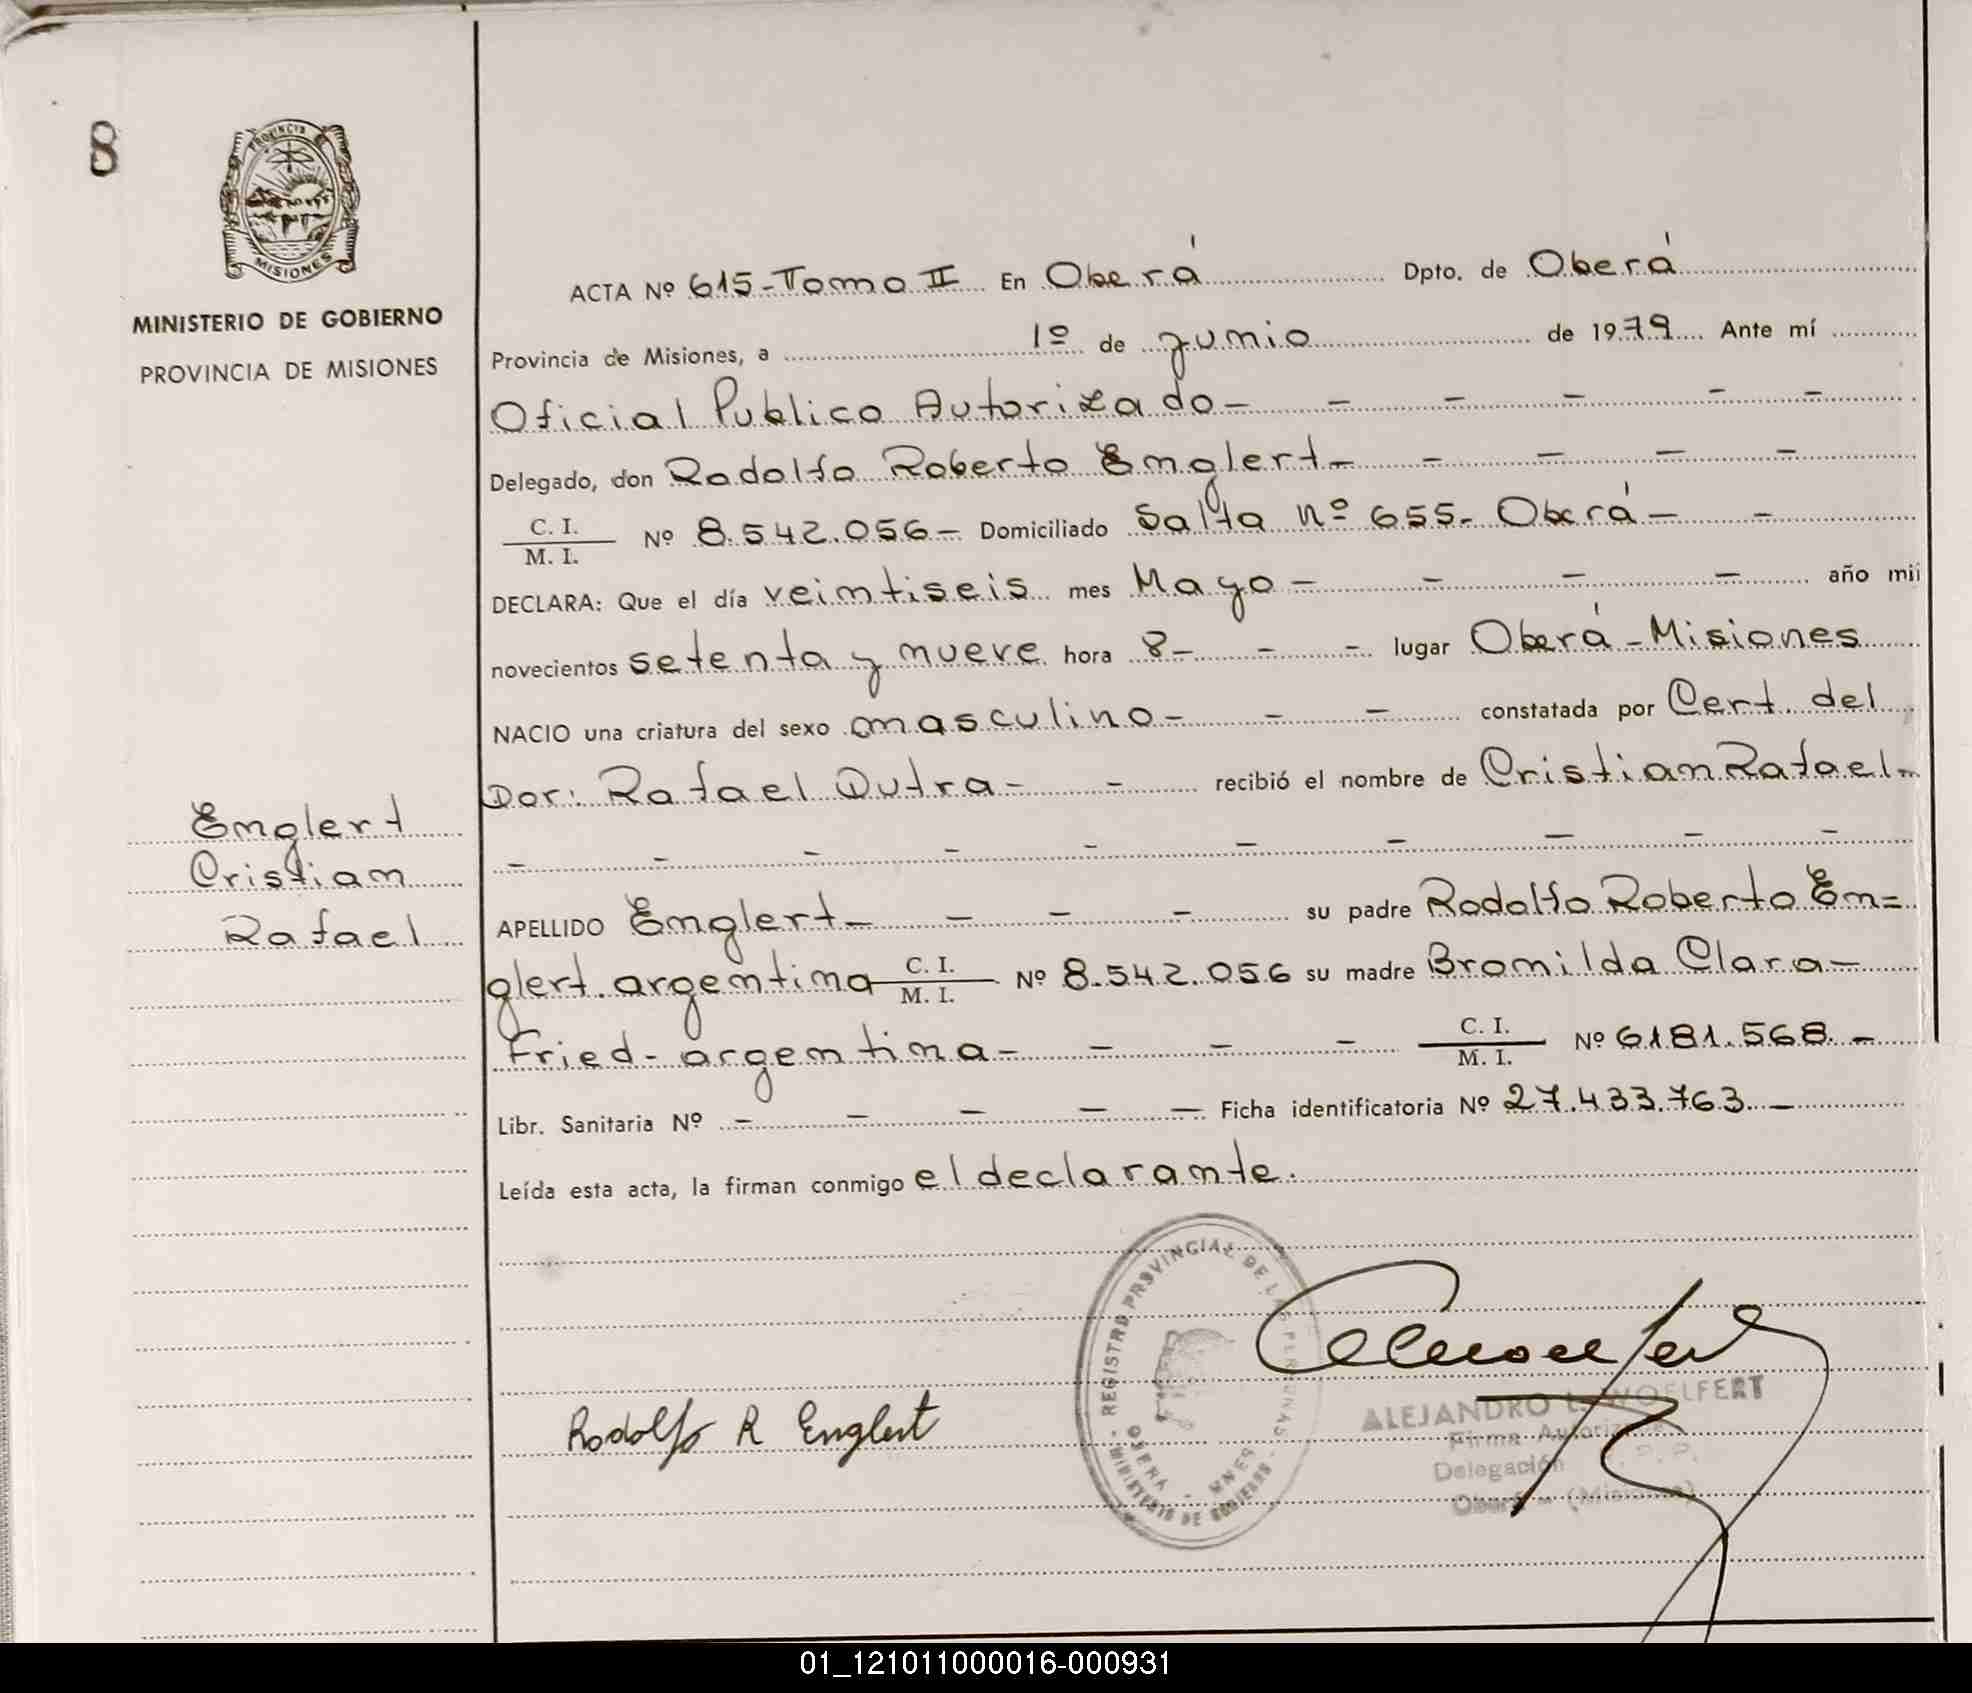 8
PROVINCIA
MISIONES
MINISTERIO DE GOBIERNO
PROVINCIA DE MISIONES
Englert
Cristian
Rafael
ACTA Nº 615-Tomo II En Oberá Dpto. de Oberá
Provincia de Misiones, a 1º de junio de 1979 Ante mí
Oficial Publico Autorizado - - - - - -
Delegado, don Rodolfo Roberto Englert - - - - -
C. I.
M. I.
Nº 8.542.056 - Domiciliado Salta nº 655- Oberá - -
DECLARA: Que el día veintiseis mes Mayo - - - - año mil
novecientos setenta y nueve hora 8 - - - lugar Oberá - Misiones
NACIO una criatura del sexo masculino - - - constatada por Cert. del
Dor: Rafael Dutra - - recibió el nombre de Cristian Rafael -
- - - - - - - - - -
APELLIDO Englert - - - - su padre Rodolfo Roberto En=
glert. argentina C. I. / M. I. Nº 8.542.056 su madre Bromilda Clara -
Fried - argentina - - - - C. I. / M. I. Nº 6181.568. -
Libr. Sanitaria Nº - - - - - Ficha identificatoria Nº 27.433.763. -
Leída esta acta, la firman conmigo el declarante.
REGISTRO PROVINCIAL DE LAS PERSONAS
OBERA - MNES
MINISTERIO DE GOBIERNO
Rodolfo R Englert
ALEJANDRO L. WOELFERT
Firma Autorizada
Delegación R. P. P.
Oberá - (Misiones)
01_121011000016-000931